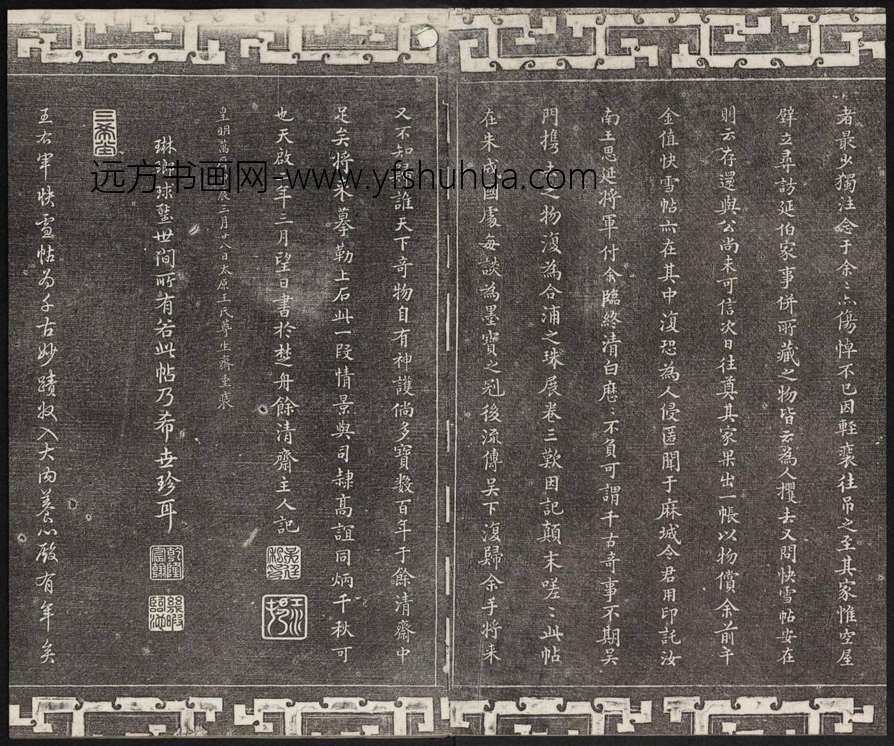 者最少獨注念于余余亦傷悼不已因輕裘往吊之至其家惟空屋
壁立尋訪延伯家事併所藏之物皆云為人攫去又問快雪帖安在
則云存還與公尚未可信次日往奠其家果出一帳以物償余前千
金值快雪帖亦在其中復恐為人侵匿聞于麻城令君用印託汝
南王思延將軍付余臨終清白歷歷不負可謂千古奇事不期吳
門攜去之物復為合浦之珠展卷三歎因記顛末嗟嗟此帖
在朱成國處每談為墨寶之冠後流傳吳下復歸余手將來
又不知為誰天下奇物自有神護倘多寶數百年于餘清齋中
足矣將來摹勒上石此一段情景與司隸高誼同炳千秋可
也天啟二年三月望日書於楚舟餘清齋主人記
皇明萬曆辰三月廿八日太原王氏尊生齋重裘
三希堂
琳瑯球璧世間所有若此帖乃希世珍耳
乾隆宸翰
幾暇臨池
王右軍快雪帖為千古妙蹟收入大內養心殿有年矣
远方书画网-www.yfshuhua.com